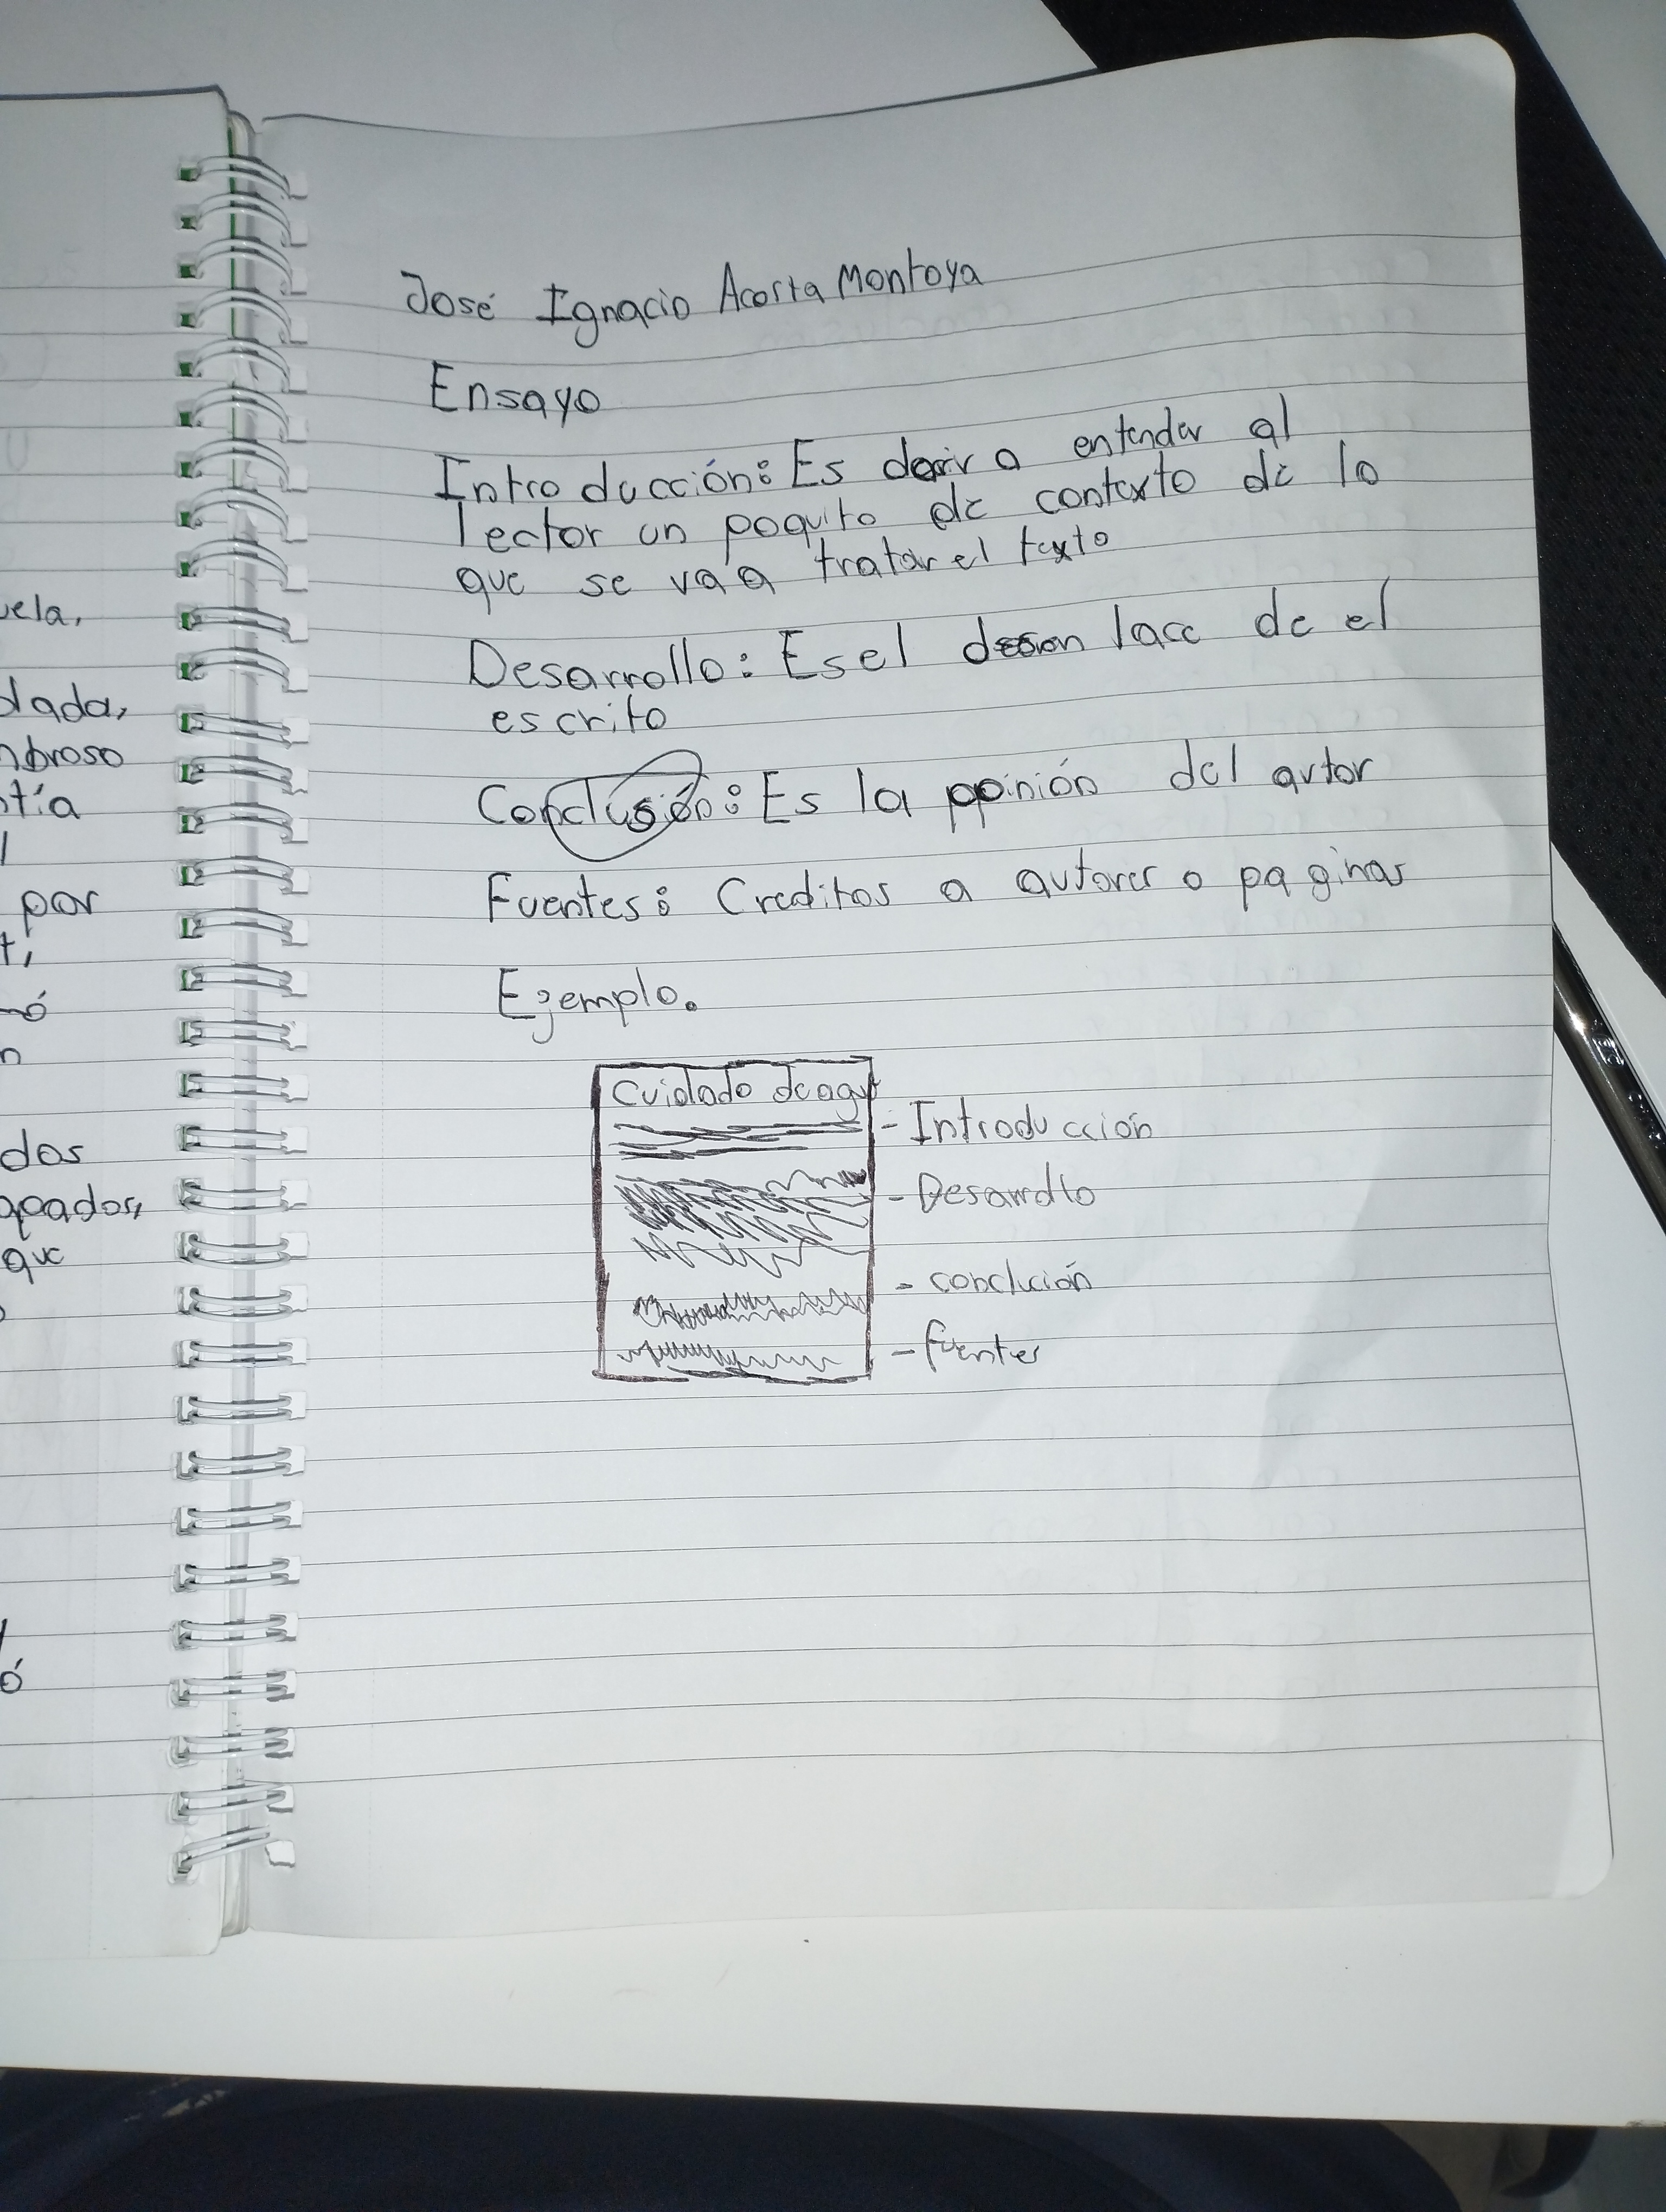 uela,
dada,
mbroso
tía
l
por
t,
mó
n
dos
apados,
que
ó
José Ignacio Acosta Montoya
Ensayo
Introducción: Es dar a entender al
lector un poquito de contexto de lo
que se va a tratar el texto
Desarrollo: Es el desenlace de el
escrito
Conclusión: Es la opinión del autor
Fuentes: Creditos a autores o paginas
Ejemplo.
Cuidado de agua
- Introducción
- Desarrollo
- conclución
- fuentes